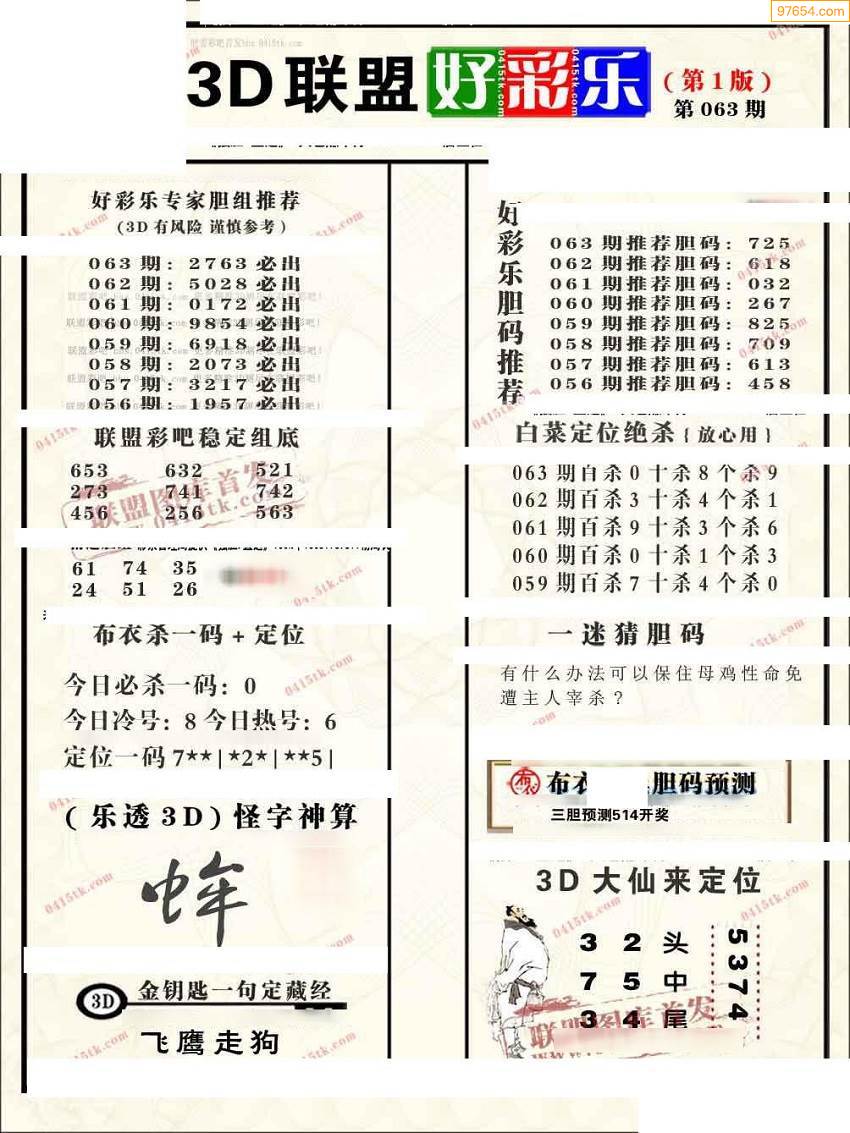 97654.com
3D联盟好彩乐
(第1版)
第063期
好彩乐专家胆组推荐
(3D有风险 谨慎参考)
063期: 2763必出
062期: 5028必出
061期: 0172必出
060期: 9854必出
059期: 6918必出
058期: 2073必出
057期: 3217必出
056期: 1957必出
联盟彩吧稳定组底
653 632 521
273 741 742
456 256 563
联盟图库首发
61 74 35
24 51 26
布衣杀一码+定位
今日必杀一码: 0
今日冷号: 8 今日热号: 6
定位一码 7**|*2*|**5|
(乐透3D)怪字神算
3D 金钥匙一句定藏经
飞鹰走狗
好彩乐胆码推荐
063期推荐胆码: 725
062期推荐胆码: 618
061期推荐胆码: 032
060期推荐胆码: 267
059期推荐胆码: 825
058期推荐胆码: 709
057期推荐胆码: 613
056期推荐胆码: 458
白菜定位绝杀{放心用}
063期自杀0十杀8个杀9
062期百杀3十杀4个杀1
061期百杀9十杀3杀6
060期百杀0十杀1个杀3
059期百杀7十杀4个杀0
一迷猜胆码
有什么办法可以保住母鸡性命免
遭主人宰杀?
布衣 胆码预测
三胆预测514开奖
3D大仙来定位
3 2 头
7 5 中
3 4 尾
5374
联盟图库首发
0415tk.com